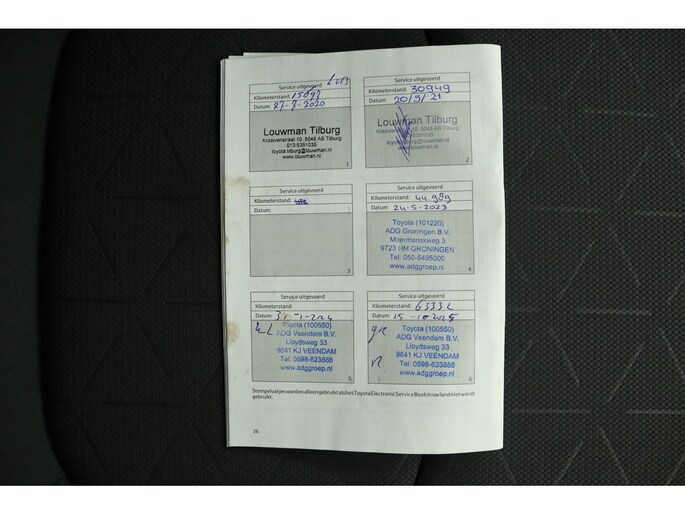 Service uitgevoerd
Kilometerstand: 15097
Datum: 27-7-2020
Louwman Tilburg
Kraaivenstraat 10, 5048 AB Tilburg
013-5351035
toyota.tilburg@louwman.nl
www.louwman.nl
1
Service uitgevoerd
Kilometerstand: 30949
Datum: 20/9/21
Louwman Tilburg
Kraaivenstraat 10, 5048 AB Tilburg
013-5351035
toyota.tilburg@louwman.nl
www.louwman.nl
2
Service uitgevoerd
Kilometerstand:
Datum:
3
Service uitgevoerd
Kilometerstand: 44.989
Datum: 24-5-2023
Toyota (101220)
ADG Groningen B.V.
Moermanskweg 3
9723 HM GRONINGEN
Tel: 050-5495000
www.adggroep.nl
4
Service uitgevoerd
Kilometerstand:
Datum:
Toyota (100550)
ADG Veendam B.V.
Lloydsweg 33
9641 KJ VEENDAM
Tel: 0598-623888
www.adggroep.nl
5
Service uitgevoerd
Kilometerstand:
Datum: 15-10-2025
Toyota (100550)
ADG Veendam B.V.
Lloydsweg 33
9641 KJ VEENDAM
Tel: 0598-623888
www.adggroep.nl
6
Stempelvakjes worden alleen gebruikt als het Toyota Electronic Service Book in uw land niet wordt
gebruikt.
26